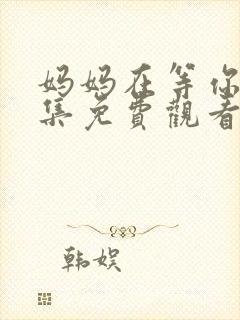 妈妈在等你
集免費觀看
韩娱